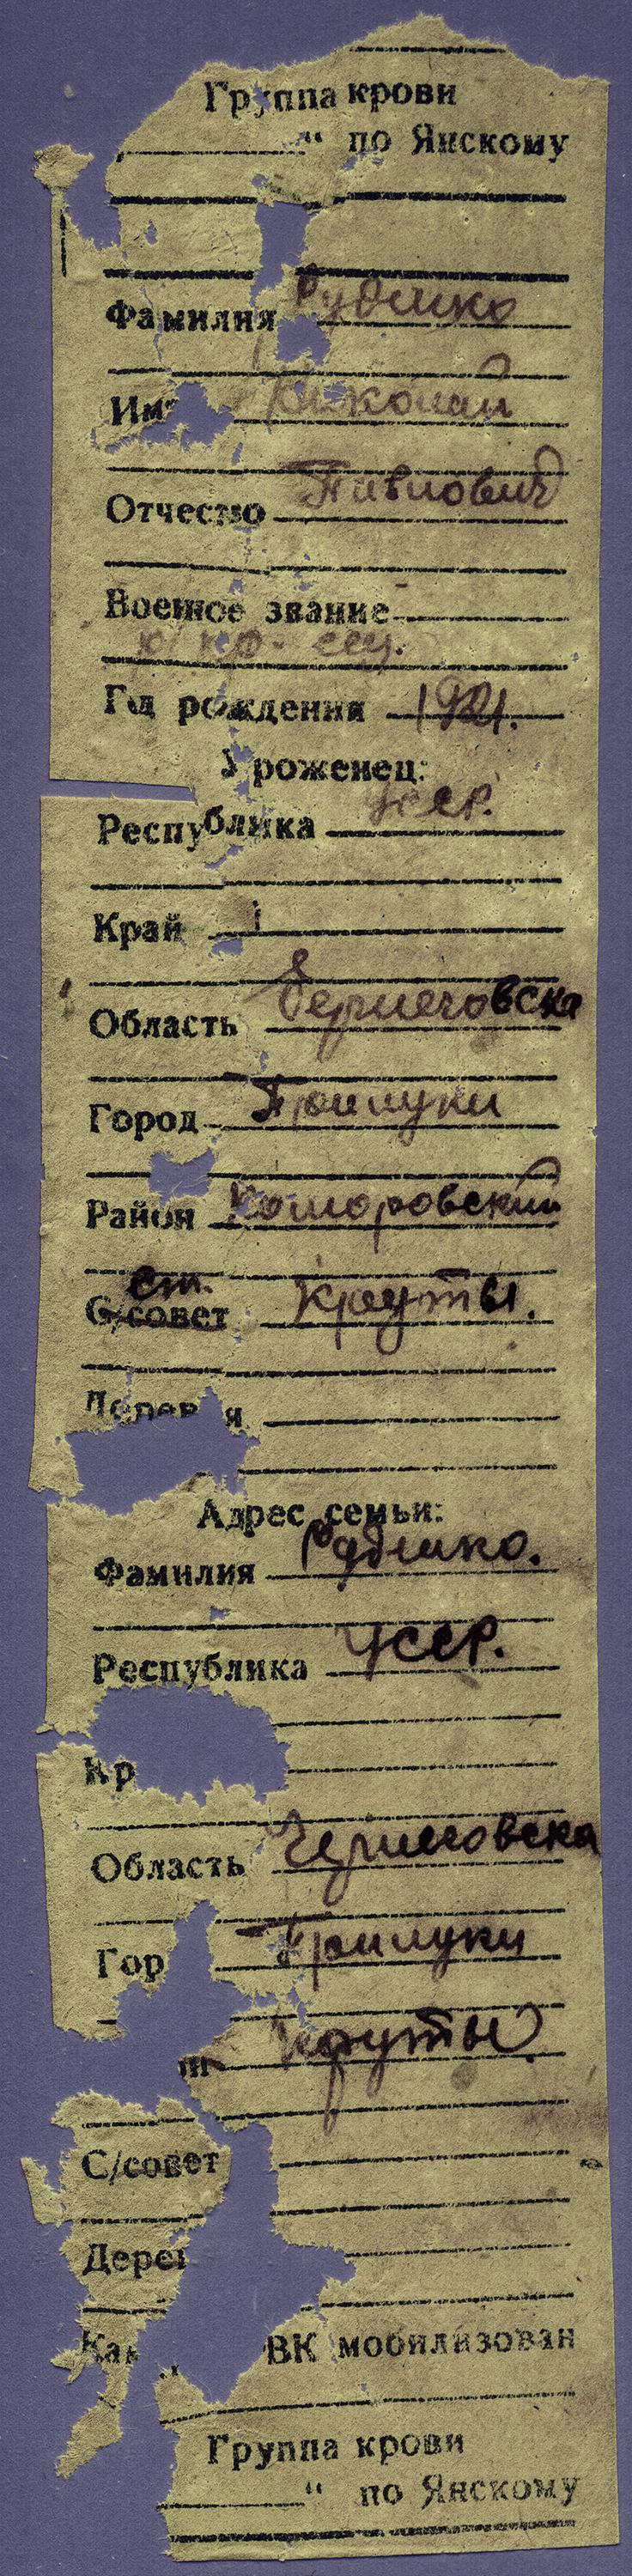 Группа крови
" по Янскому
Фамилия Рудешко
Имя Николай
Отчество Павлович
Военное звание
кр-ец.
Год рождения 1921.
Уроженец:
Республика УССР.
Край
Область Черниговска
Город Прилуки
Район Комаровский
ст.
С/совет Круты.
Деревня
Адрес семьи:
Фамилия Рудешко.
Республика УССР.
Кр
Область Черниговска
Гор Прилуки
Круты
С/совет
Дерев
Каки ВК мобилизован
Группа крови
" по Янскому